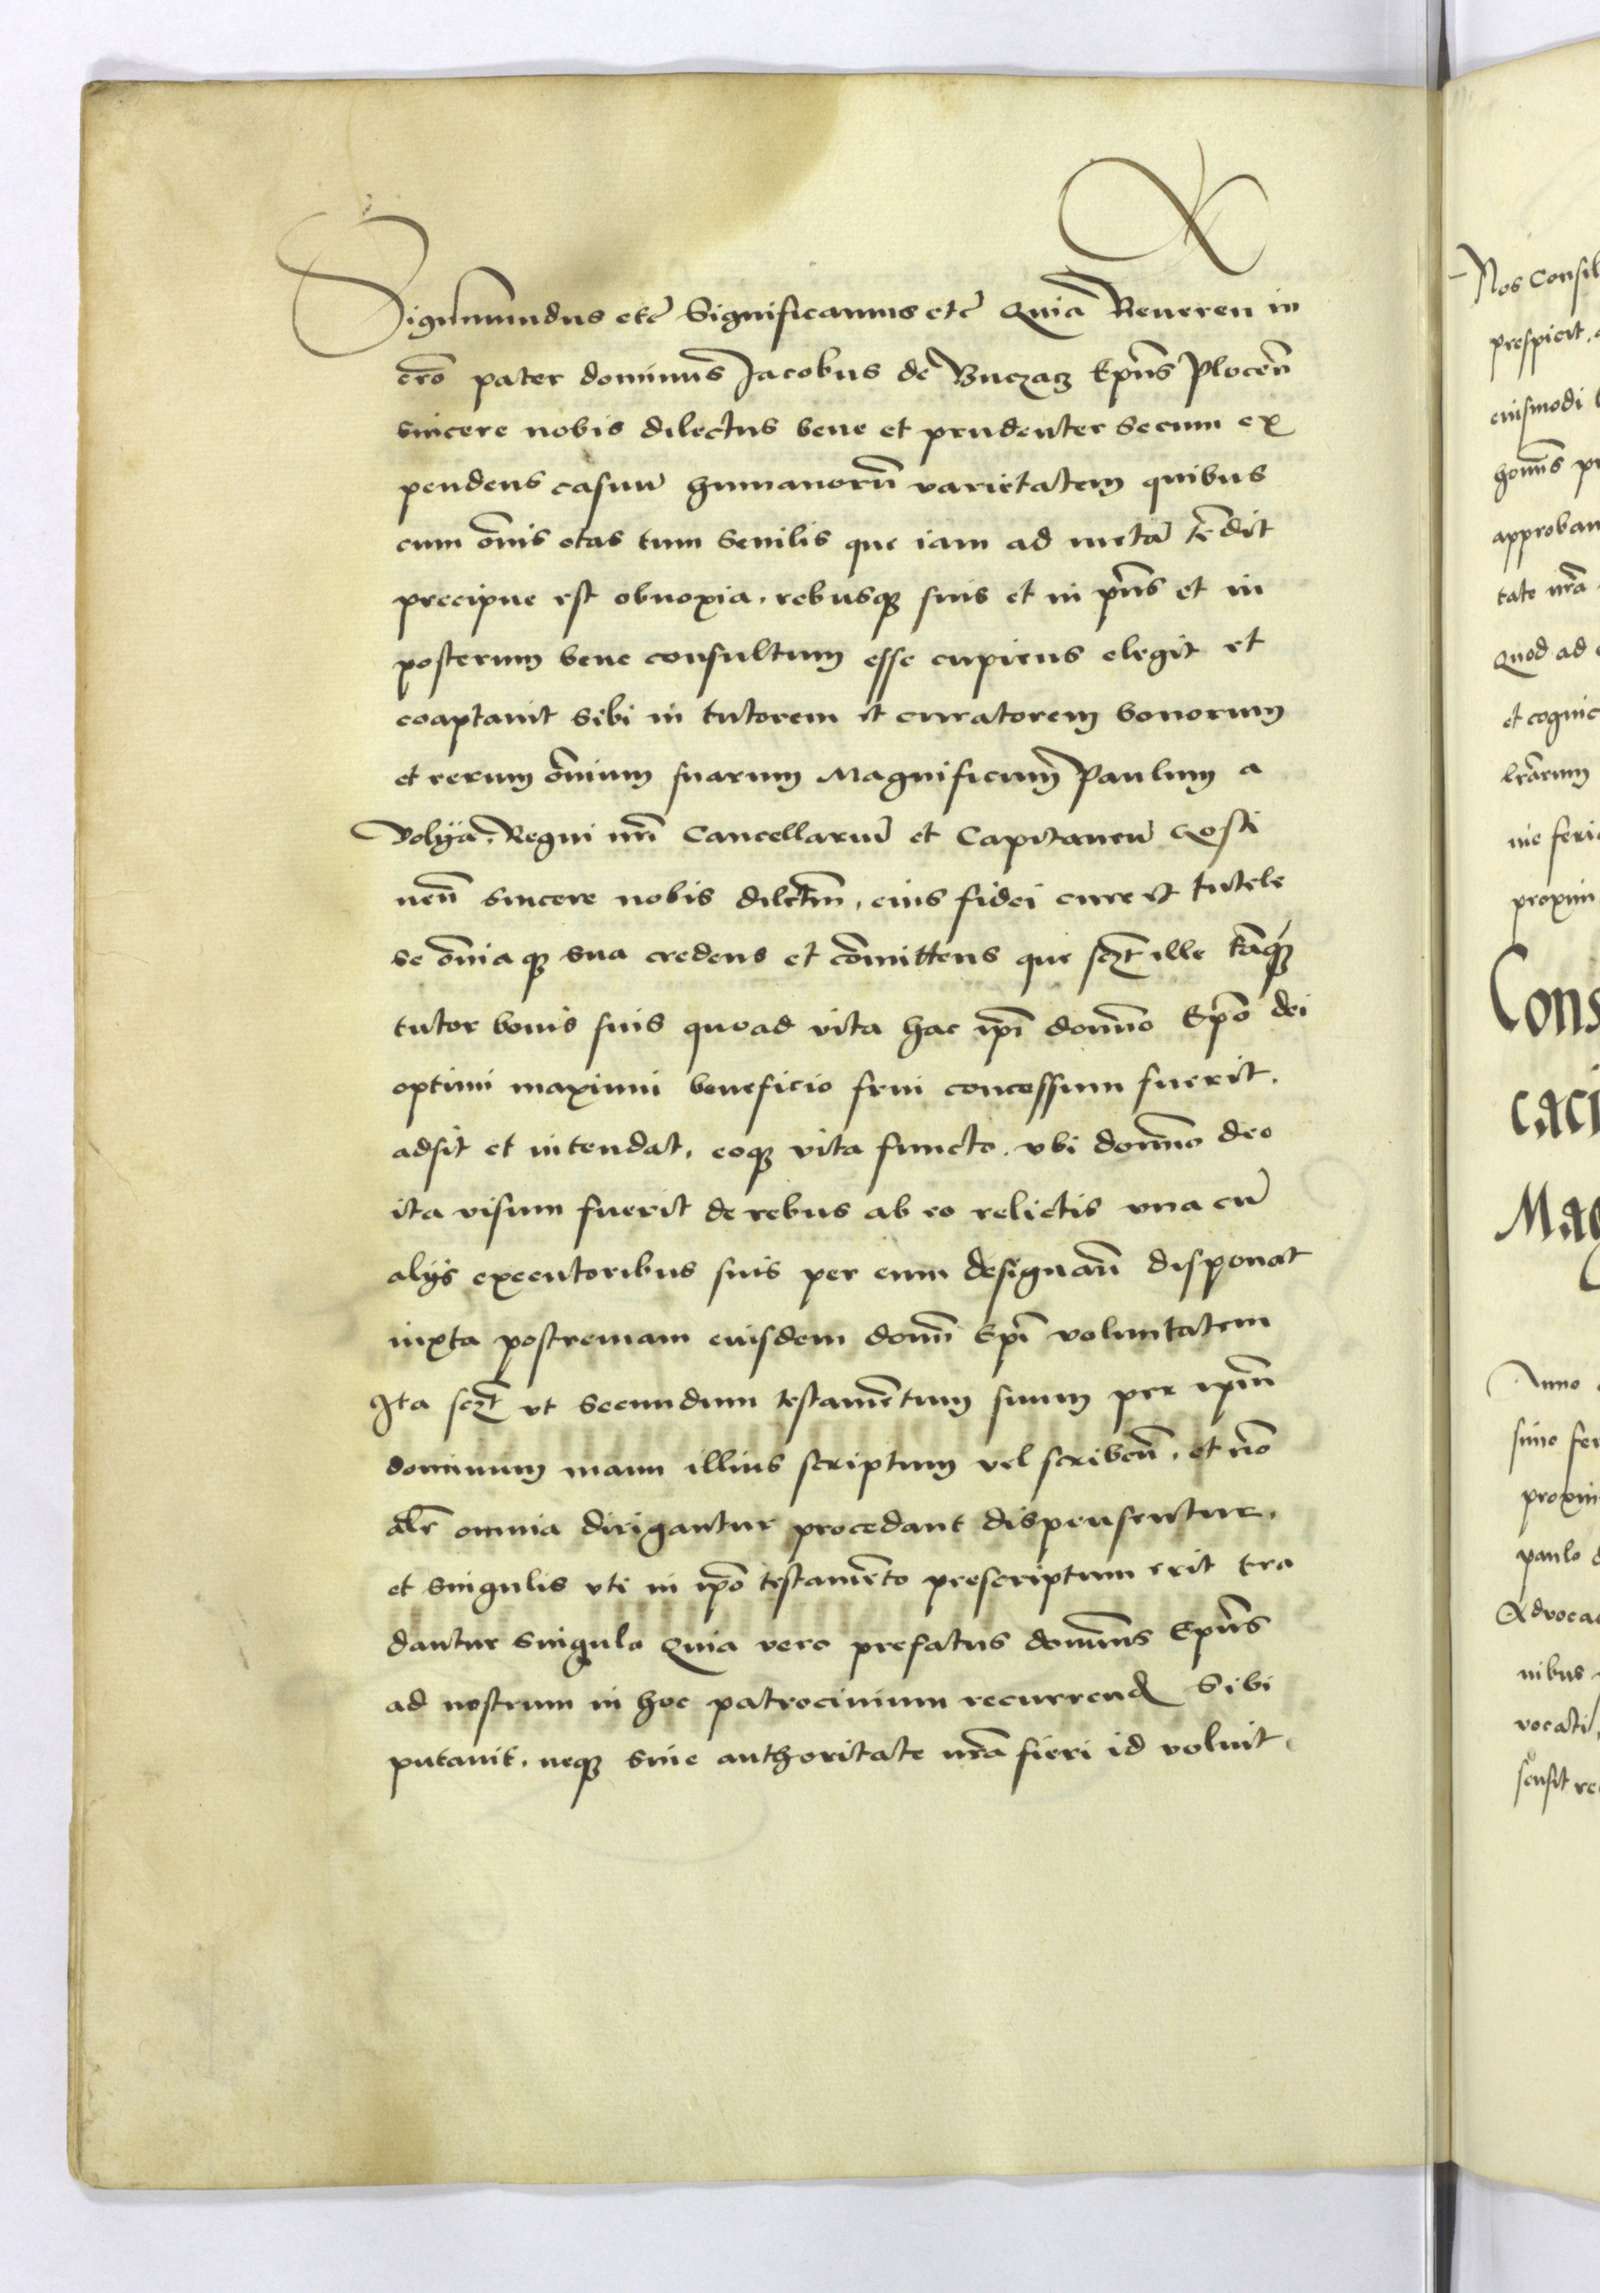 Sigismundus etc̄ Significamus etc̄ Quia Reueren in
cr̄o pater dominus Jacobus de Buczacz Ep̄us Plocen̄
sincere nobis dilectus bene et prudenter secum ex
pendens casuu humanorū varietatem quibus
cum ōnis etas tum senilis que iam ad metā tēdit
precipue est obnoxia. rebusq suis et in pn̄s et in
posterum bene consultum esse cupiens elegit et
coaptauit sibi in tutorem et curatorem bonorum
et rerum ōmnium suarum Magnificum Paulum a
Volya Regni nr̄i Cancellariū et Capitaneū Gosti
nen̄ sincere nobis dilectm̄, eius fidei cure et tutele
se ōniaq sua credens et cōmittens que sczt ille tāq
tutor bonis suis quoad vita hac ip̄i dom̄no Ep̄o dei
optimi maximi beneficio frui concessum fuerit.
adsit et intendat, eoq vita functo. vbi dom̄no deo
ita visum fuerit de rebus ab eo relictis vna cū
alijs executoribus suis per eum designan̄ disponat
iuxta postremam eiusdem domn̄i Ep̄i voluntatem
Ita sczt vt secundum testamētum suum per ipm̄
dominum manu illius scriptum vel scriben̄. et nō
alr̄ omnia dirigantur procedant dispensentur.
et singulis vti in ip̄o testamēto prescriptum erit tra
dantur singula Quia vero prefatus domn̄s Ep̄us
ad nostrum in hoc patrocinium recurrend sibi
putauit. neq sine authoritate nrā fieri id voluit
Nos Consil
prespicit.
eiusmodi
approban
tate nrā
Quod ad
et cognic
lrārum
proxim
Cons
caci
Mag
Anno
proxim
paulo
Aduoca
nibus
vocati